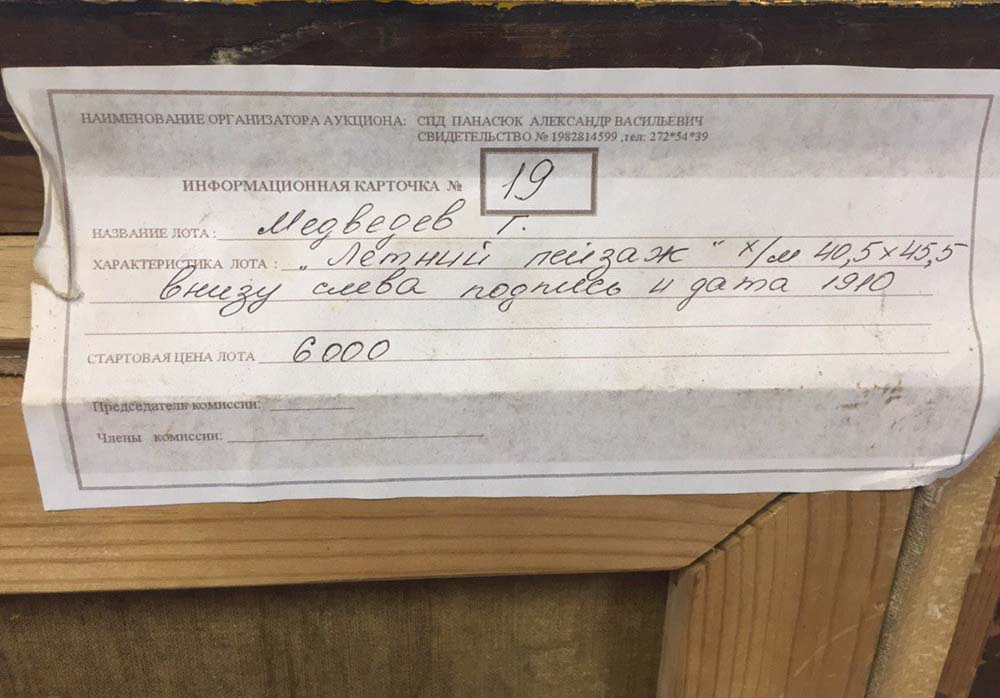 НАИМЕНОВАНИЕ ОРГАНИЗАТОРА АУКЦИОНА: СПД ПАНАСЮК АЛЕКСАНДР ВАСИЛЬЕВИЧ
СВИДЕТЕЛЬСТВО № 1982814599 ,тел: 272*54*39
ИНФОРМАЦИОННАЯ КАРТОЧКА № 19
НАЗВАНИЕ ЛОТА : Медведев Г.
ХАРАКТЕРИСТИКА ЛОТА : „Летний пейзаж" х/м 40,5х45,5
внизу слева подпись и дата 1910
СТАРТОВАЯ ЦЕНА ЛОТА 6000
Председатель комиссии:
Члены комиссии: